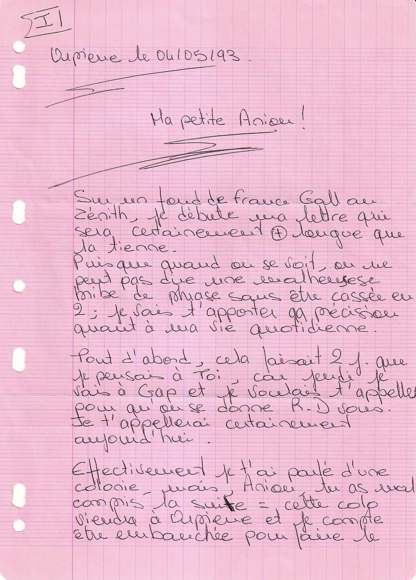 I
Orpierre le 04/05/93.
Ma petite Anion !
Sur un fond de France Gall au
Zénith, je débute ma lettre qui
sera certainement + longue que
la tienne.
Puisque quand on se voit, on ne
peut pas dire une malheureuse
bribe de phrase sans être cassée en
2 ; je vais t'apporter qq précision
quant à ma vie quotidienne.
Tout d'abord, cela faisait 2 j. que
je pensais à Toi, car jeudi je
vais à Gap et je voulais t'appeller
pour qu'on se donne R.D vous.
Je t'appellerai certainement
aujourd'hui.
Effectivement je t'ai parlé d'une
colonie, mais, Anion, tu as mal
compris la suite = cette colo
viendra à Orpierre et je compte
être embauchée pour faire le